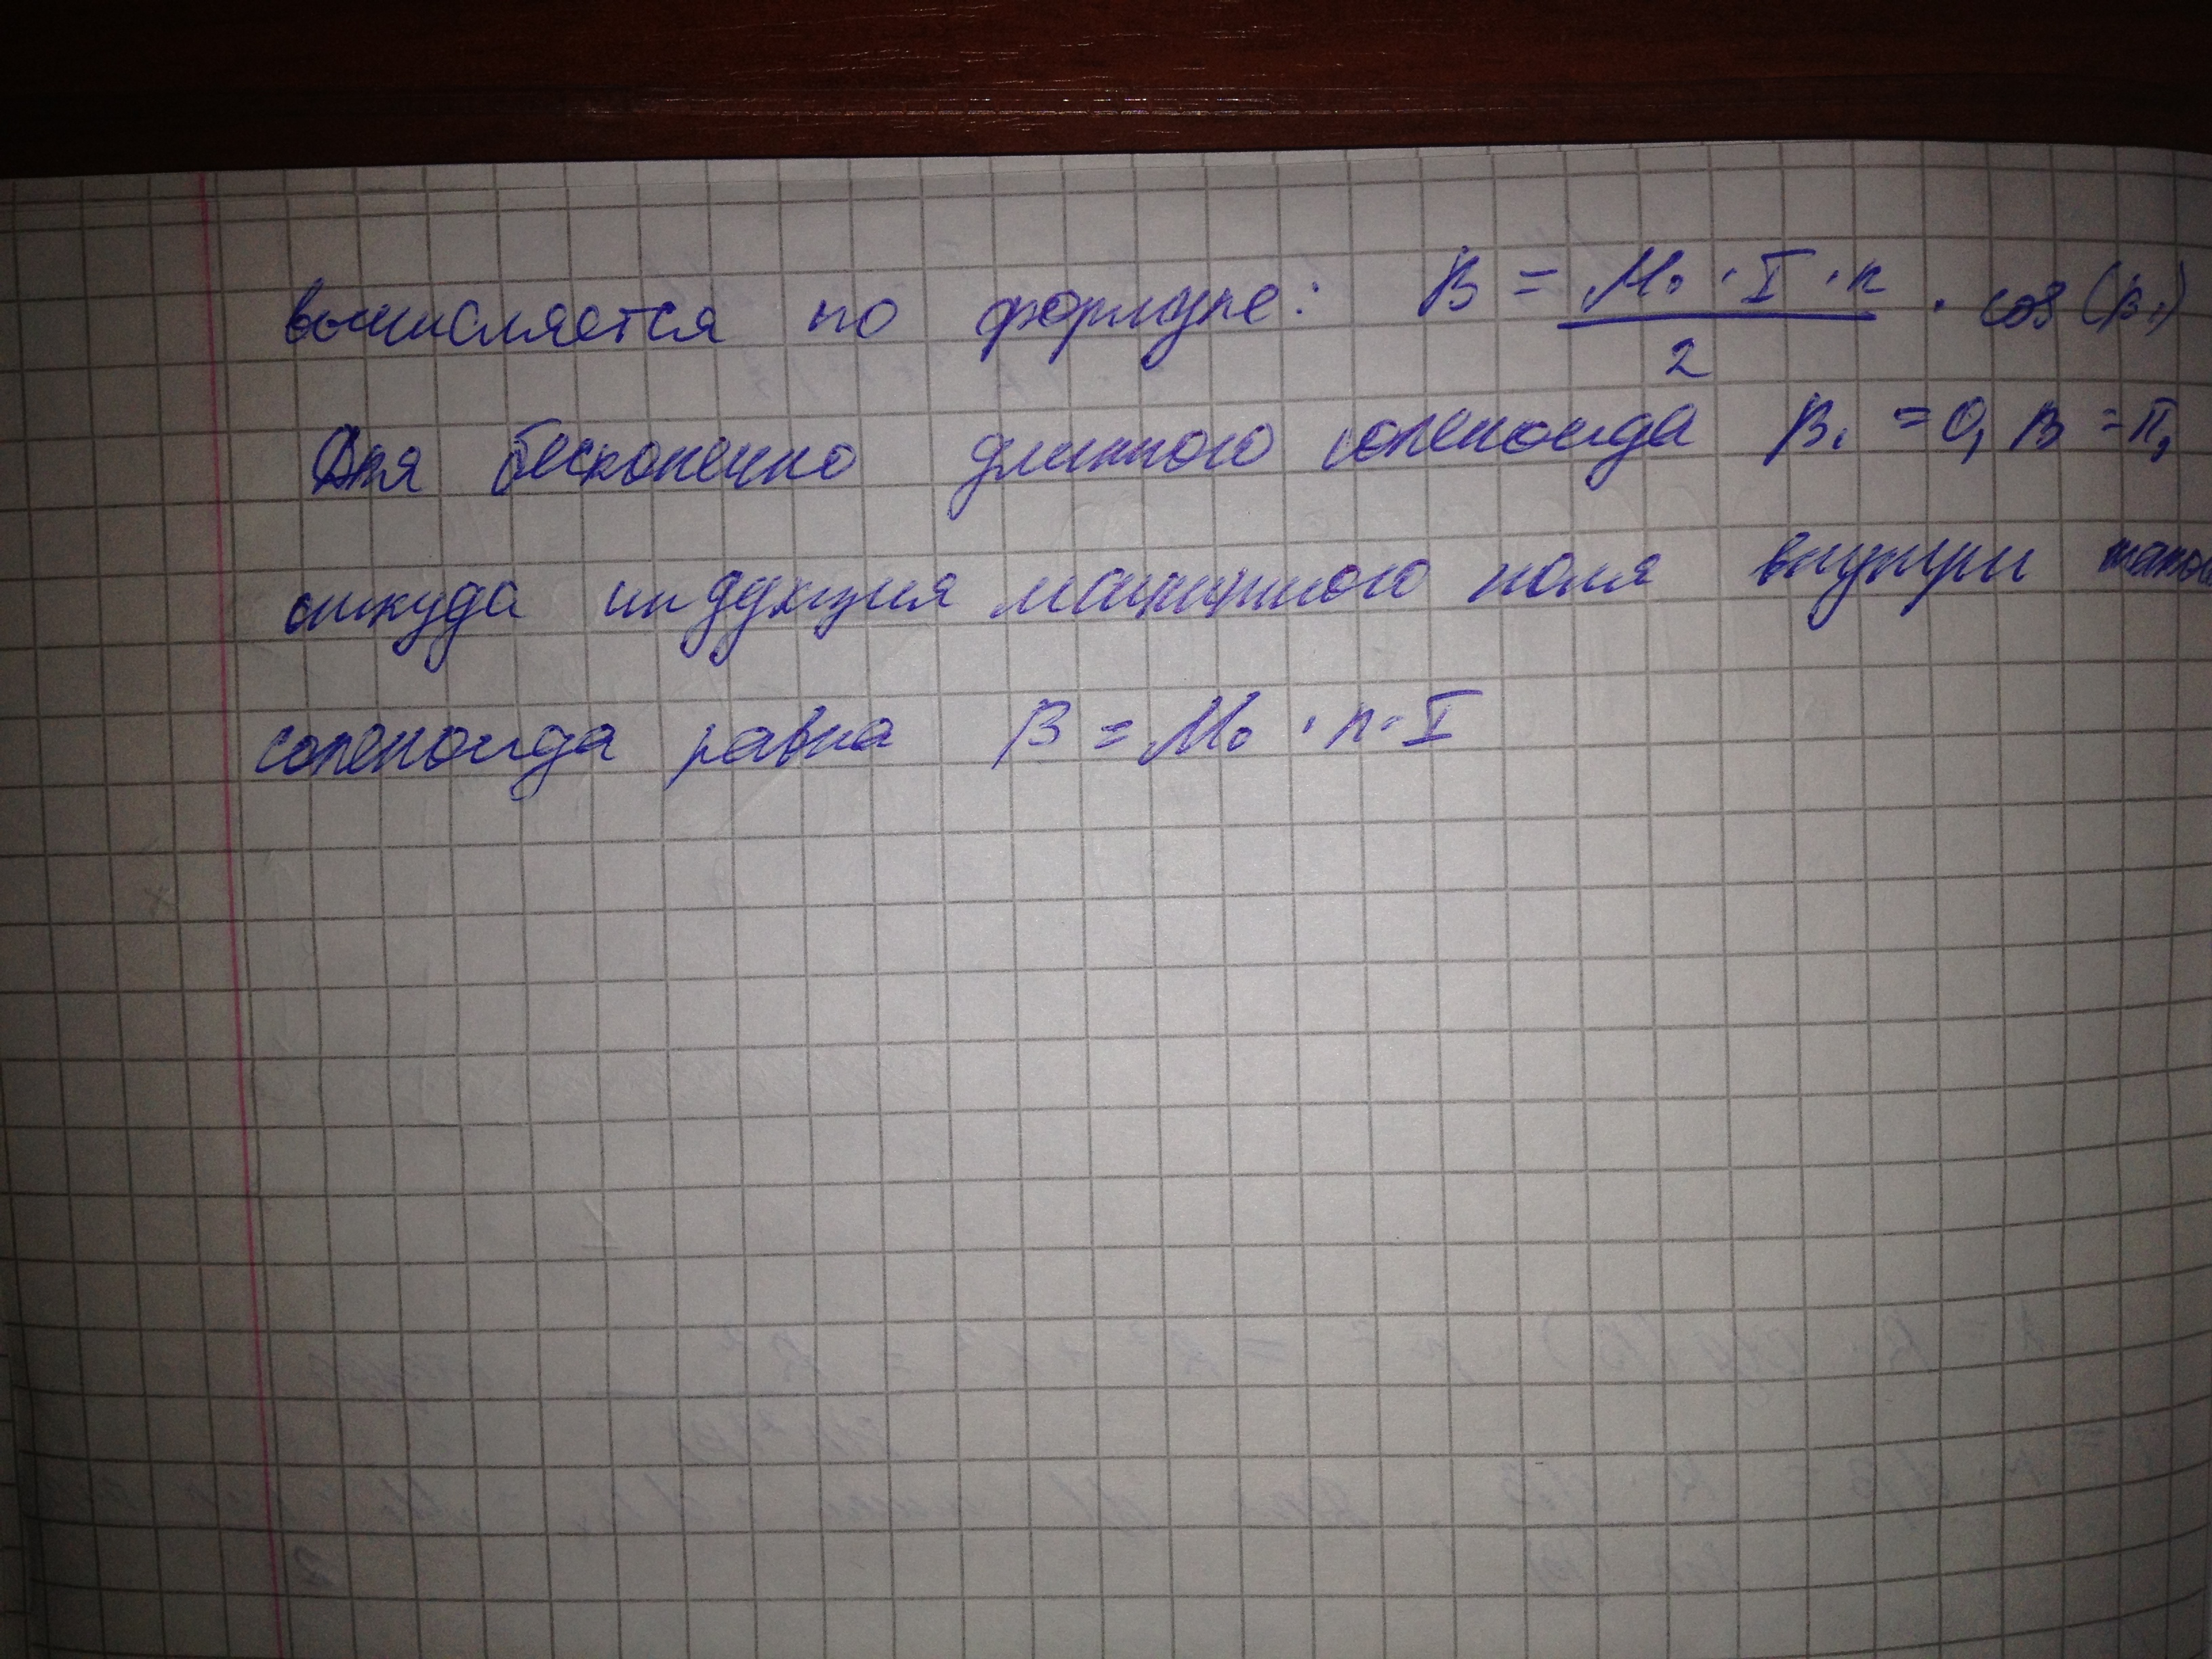 вычисляется по формуле: B = μ₀ · I · n / 2 · cos(β₁)
Для бесконечно длинного соленоида β₁ = 0, β = π,
откуда индукция магнитного поля внутри такого
соленоида равна B = μ₀ · n · I